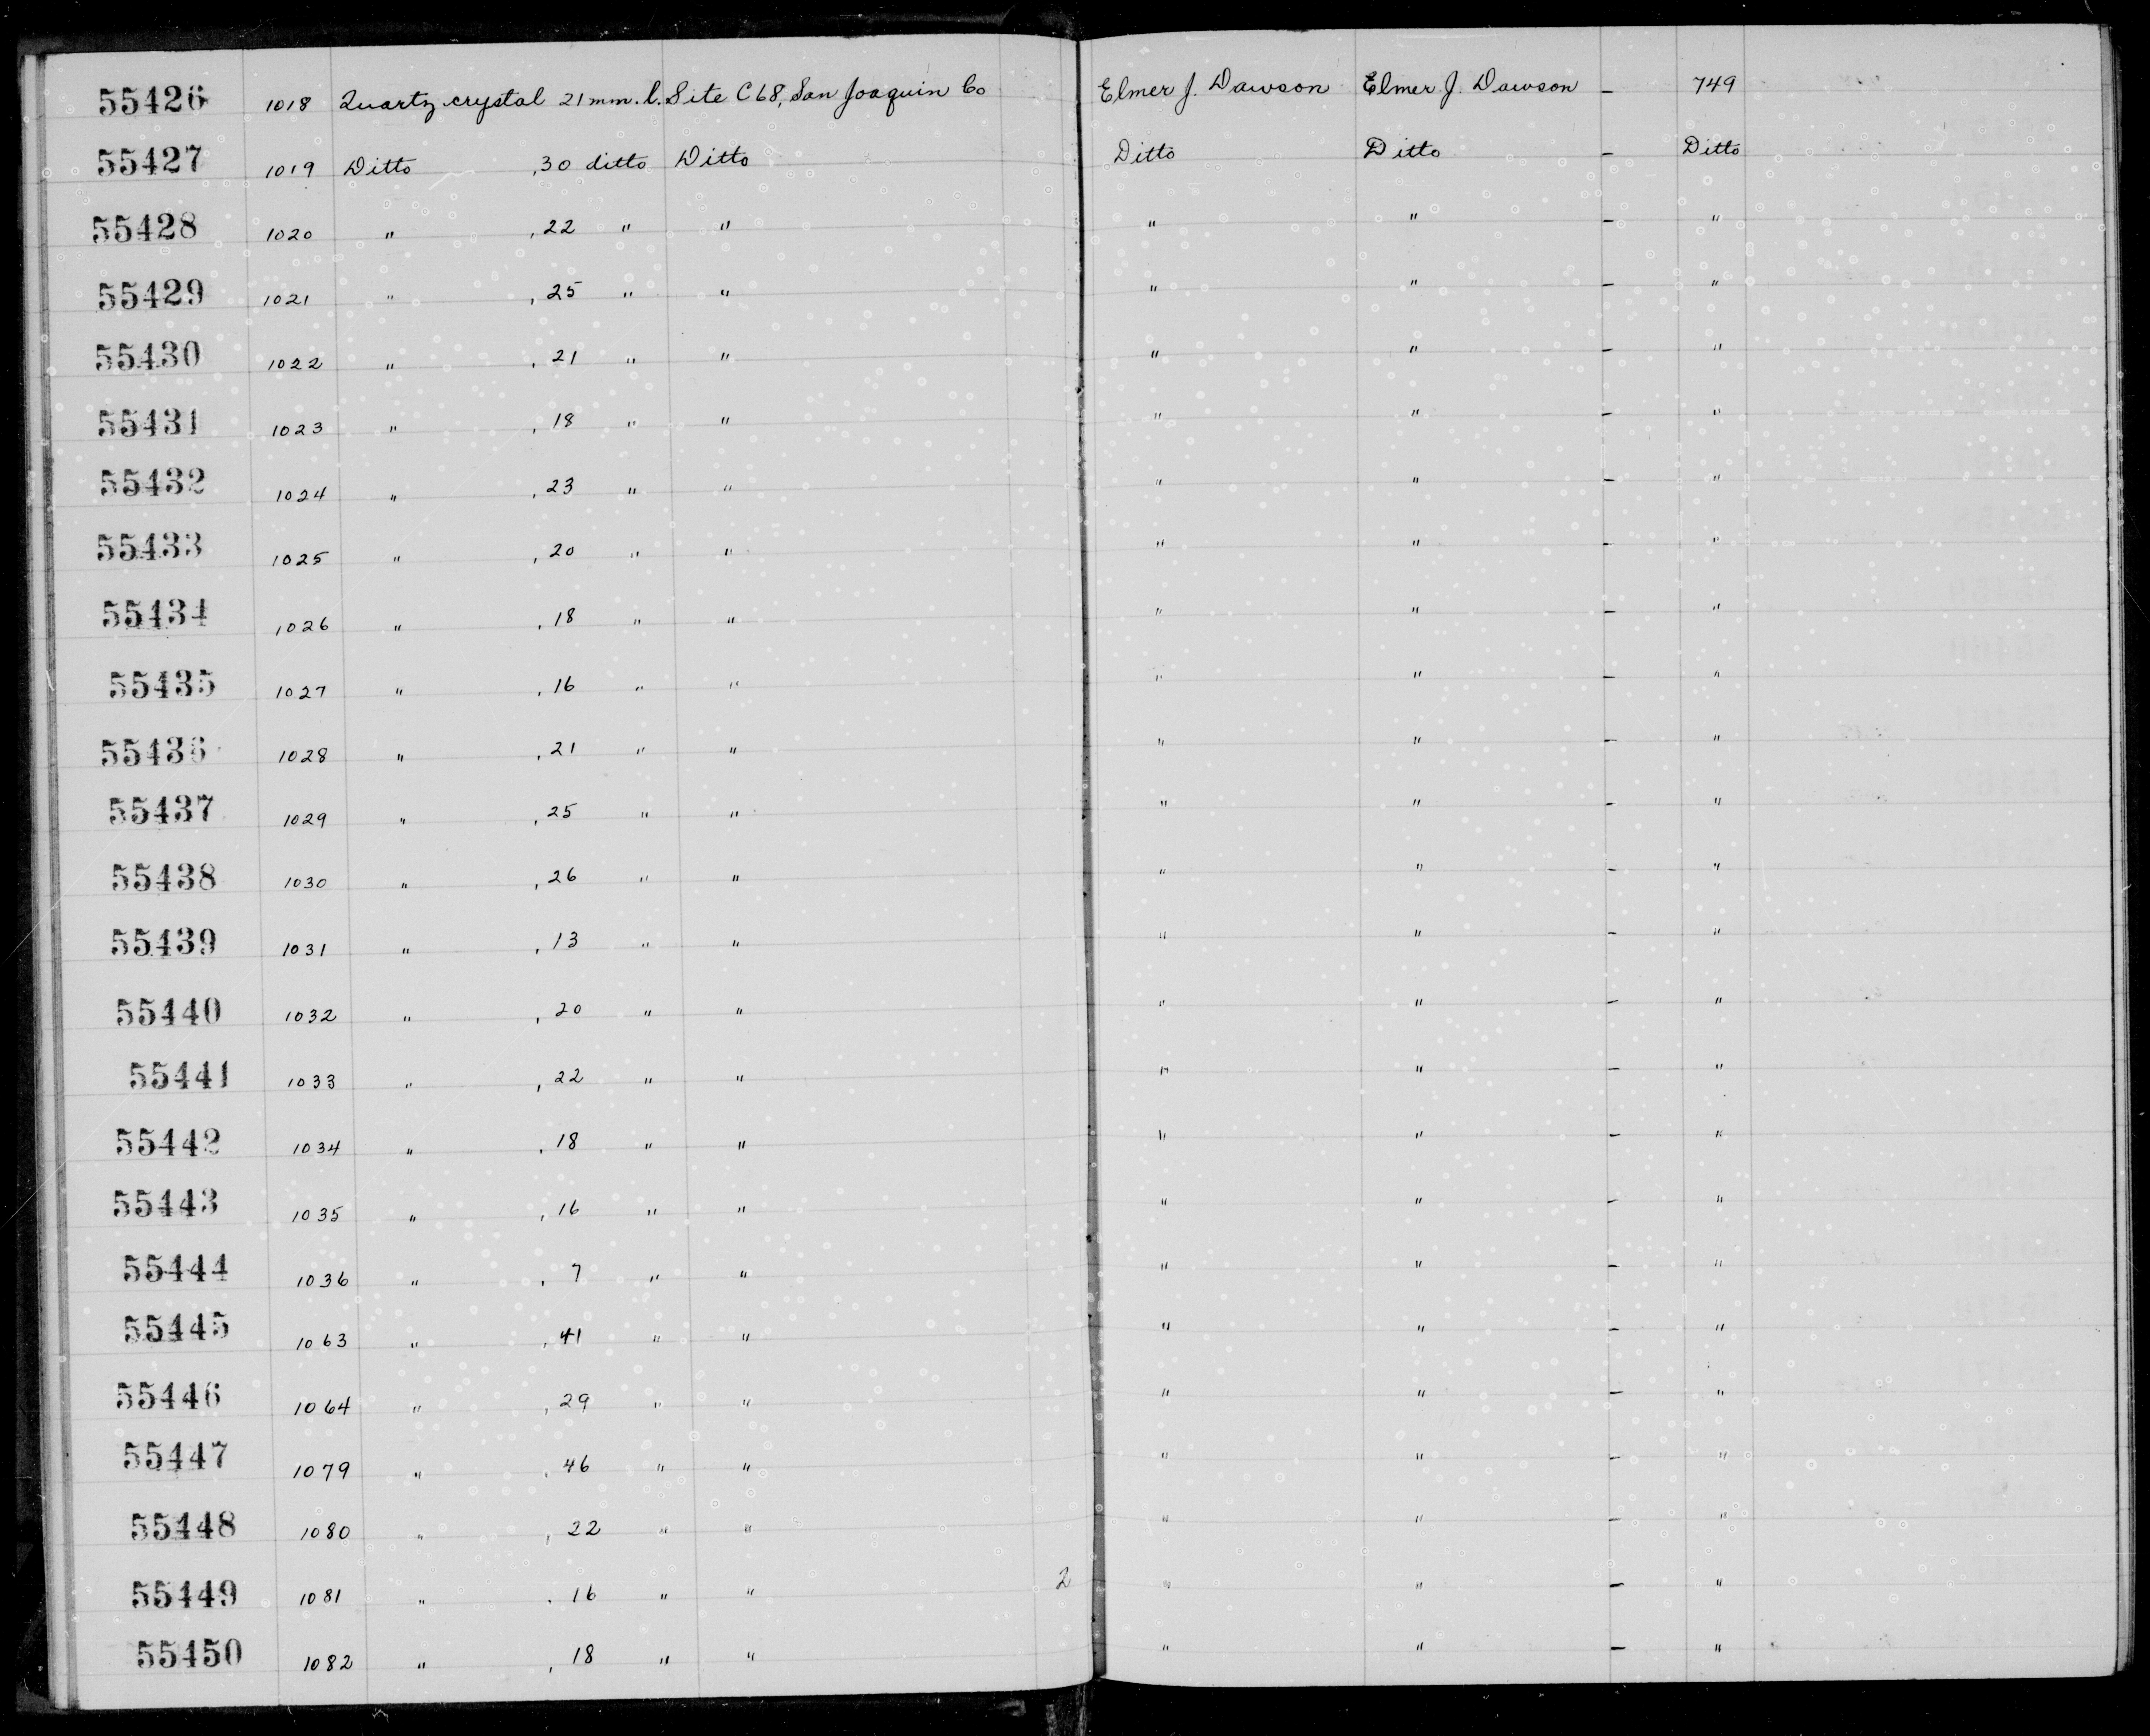 55426 1018 Quartz crystal 21 mm. l. Site C68, San Joaquin Co Elmer J. Dawson Elmer J. Dawson – 749
55427 1019 Ditto , 30 ditto Ditto Ditto Ditto – Ditto
55428 1020 " , 22 " " " " – "
55429 1021 " , 25 " " " " – "
55430 1022 " , 21 " " " " – "
55431 1023 " , 18 " " " " – "
55432 1024 " , 23 " " " " – "
55433 1025 " , 20 " " " " – "
55434 1026 " , 18 " " " " – "
55435 1027 " , 16 " " " " – "
55436 1028 " , 21 " " " " – "
55437 1029 " , 25 " " " " – "
55438 1030 " , 26 " " " " – "
55439 1031 " , 13 " " " " – "
55440 1032 " , 20 " " " " – "
55441 1033 " , 22 " " " " – "
55442 1034 " , 18 " " " " – "
55443 1035 " , 16 " " " " – "
55444 1036 " , 7 " " " " – "
55445 1063 " , 41 " " " " – "
55446 1064 " , 29 " " " " – "
55447 1079 " , 46 " " " " – "
55448 1080 " , 22 " " " " – "
55449 1081 " , 16 " " 2 " " – "
55450 1082 " , 18 " " " " – "